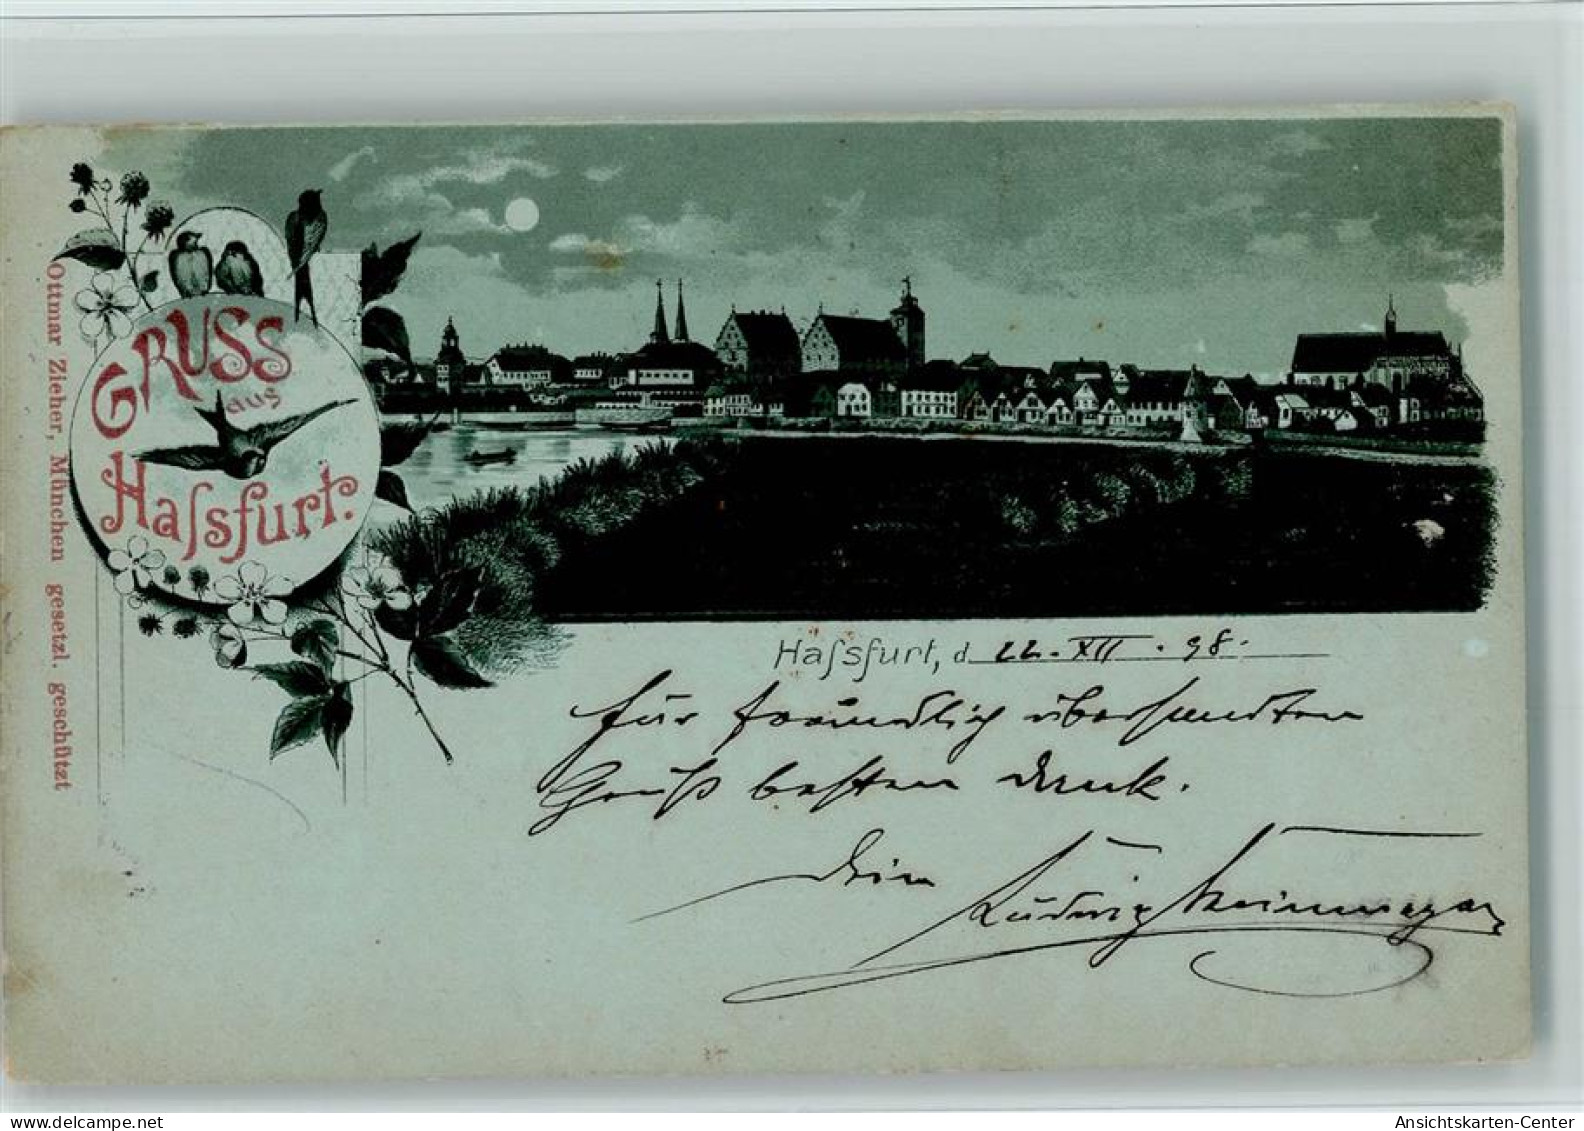 GRUSS
aus
Haſsfurt.
Ottmar Zieher, München gesetzl. geschützt
Haſsfurt, d 22. XII. 98.
für freundlich übersandten
Gruß besten Dank.
Dein
Ludwig
Ansichtskarten-Center